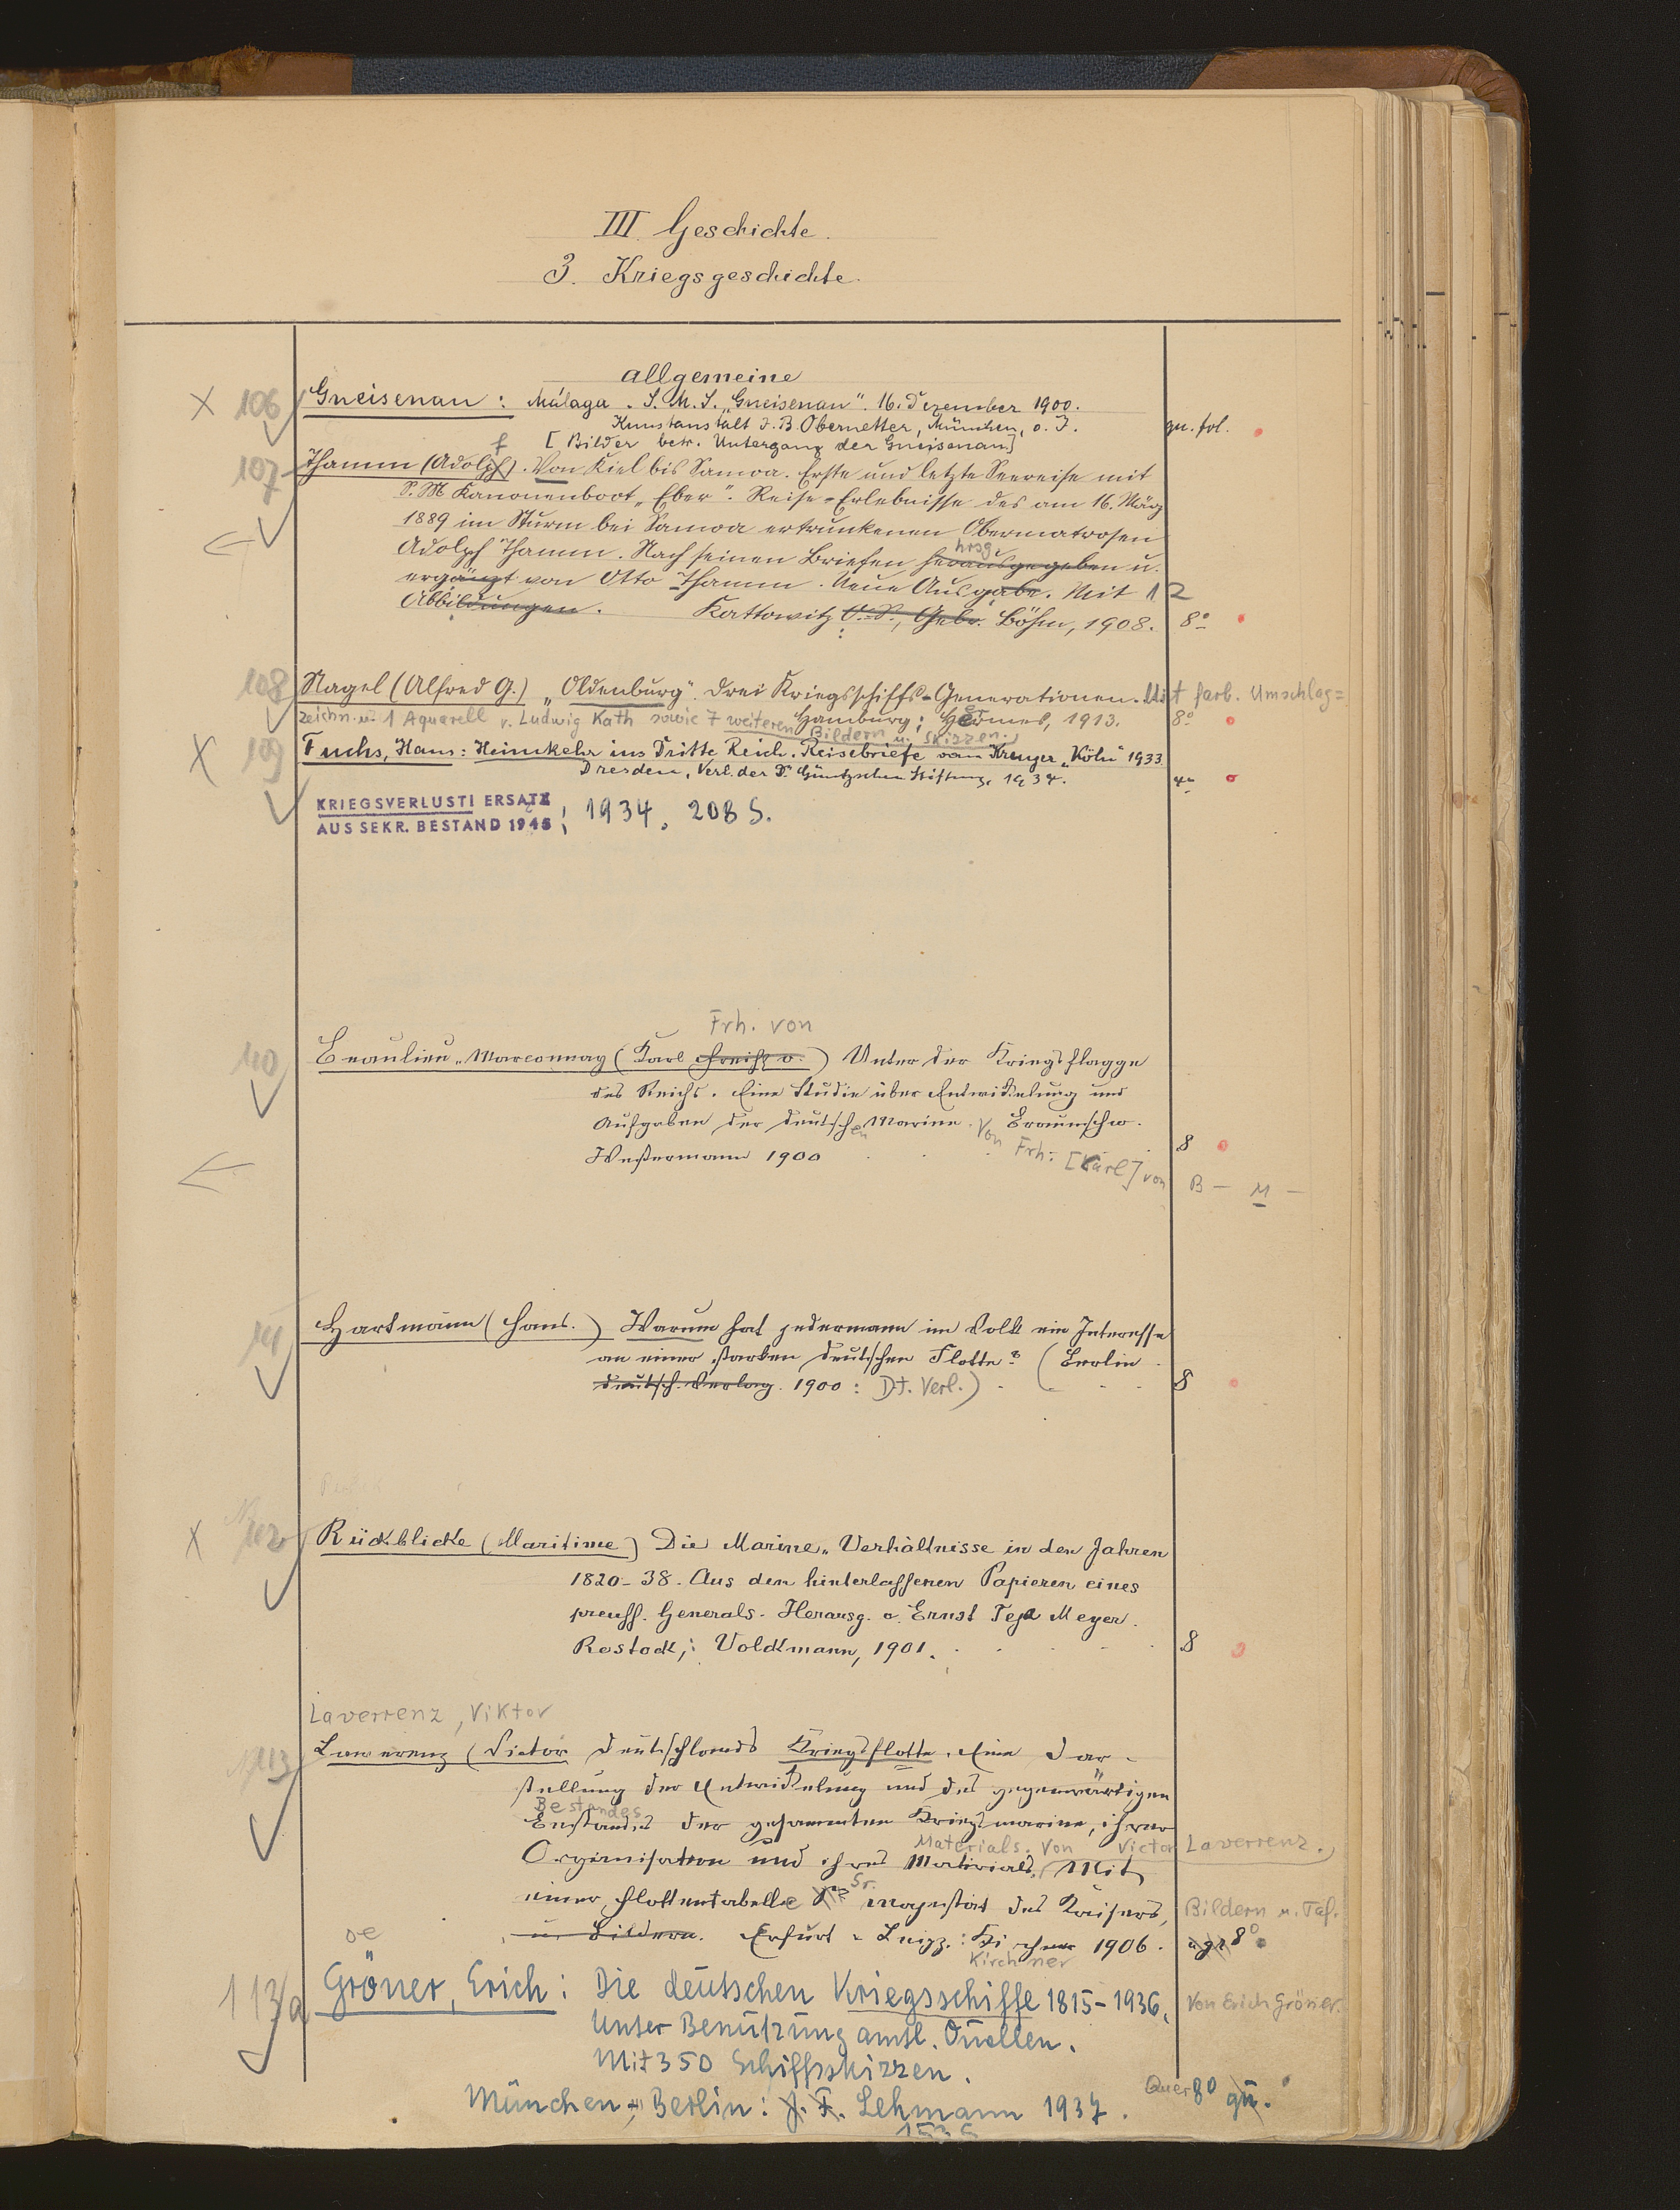 III. Geschichte.
3. Kriegsgeschichte.
allgemeine
106 Gneisenau: Málaga. S.M.S. „Gneisenau". 16. Dezember 1900.
Kunstanstalt J. B. Obernetter, München, o. J. qu. fol.
[Bilder betr. Untergang der Gneisenau]
f
107 Thamm (Adolph). Von Kiel bis Samoa. Erste und letzte Seereise mit
S. M Kanonenboot „Eber". Reise-Erlebnisse des am 16. März
1889 im Sturm bei Samoa ertrunkenen Obermatrosen
hrsg.
Adolph Thamm. Nach seinen Briefen herausgegeben u.
ergänzt von Otto Thamm. Neue Ausgabe. Mit 12
Abbildungen. Kattowitz O.-S., Gebr. Böhm, 1908. 8°
108 Nagel (Alfred G.) „Oldenburg". Drei Kriegsschiffs-Generationen. Mit farb. Umschlag=
zeichn. u. 1 Aquarell v. Ludwig Kath sowie 7 weiteren Bildern u. Skizzen.
Hamburg: Hermes, 1913. 8°
109 Fuchs, Hans: Heimkehr ins Dritte Reich. Reisebriefe vom Kreuzer „Köln" 1933
Dresden, Verl. der Dr. Güntzschen Stiftung, 1934. 4°
KRIEGSVERLUST! ERSATZ
AUS SEKR. BESTAND 1945 ; 1934. 208 S.
Frh. von
110 Beaulieu-Marconnay (Karl Freih. v.) Unter der Kriegsflagge
des Reichs. Eine Studie über Entwickelung und
Aufgaben der deutschen Marine. Braunschw.
Westermann 1900 8
Von Frh. [Karl] von B – M –
111 Hartmann (Hans.) Warum hat jedermann im Volk ein Interesse
an einer starken deutschen Flotte? (Berlin
deutsch. Verlag. 1900: Dt. Verl.) 8
112 Rückblicke (Maritime) Die Marine-Verhältnisse in den Jahren
1820-38. Aus den hinterlassenen Papieren eines
preuss. Generals. Herausg. v. Ernst Teja Meyer.
Rostock,: Volckmann, 1901. 8
Laverrenz, Viktor
113 Lawerenz (Victor Deutschlands Kriegsflotte. Eine Dar-
stellung der Entwickelung und des gegenwärtigen
Bestandes
Bestandes der gesammten Kriegsmarine, ihrer
Materials. Von Victor Laverrenz.
Organisation und ihres Materials. Mit
Sr.
einer Flottentabelle Sr. Majestät des Kaisers, Bildern u. Taf.
u. Bildern. Erfurt u. Leipz.: Kirchner 1906. 8°
Kirchner
oe
113/a Gröner, Erich: Die deutschen Kriegsschiffe 1815-1936. Von Erich Gröner.
Unter Benutzung amtl. Quellen.
Mit 350 Schiffsskizzen.
München-Berlin: J. F. Lehmann 1937. Quer 8° qu.